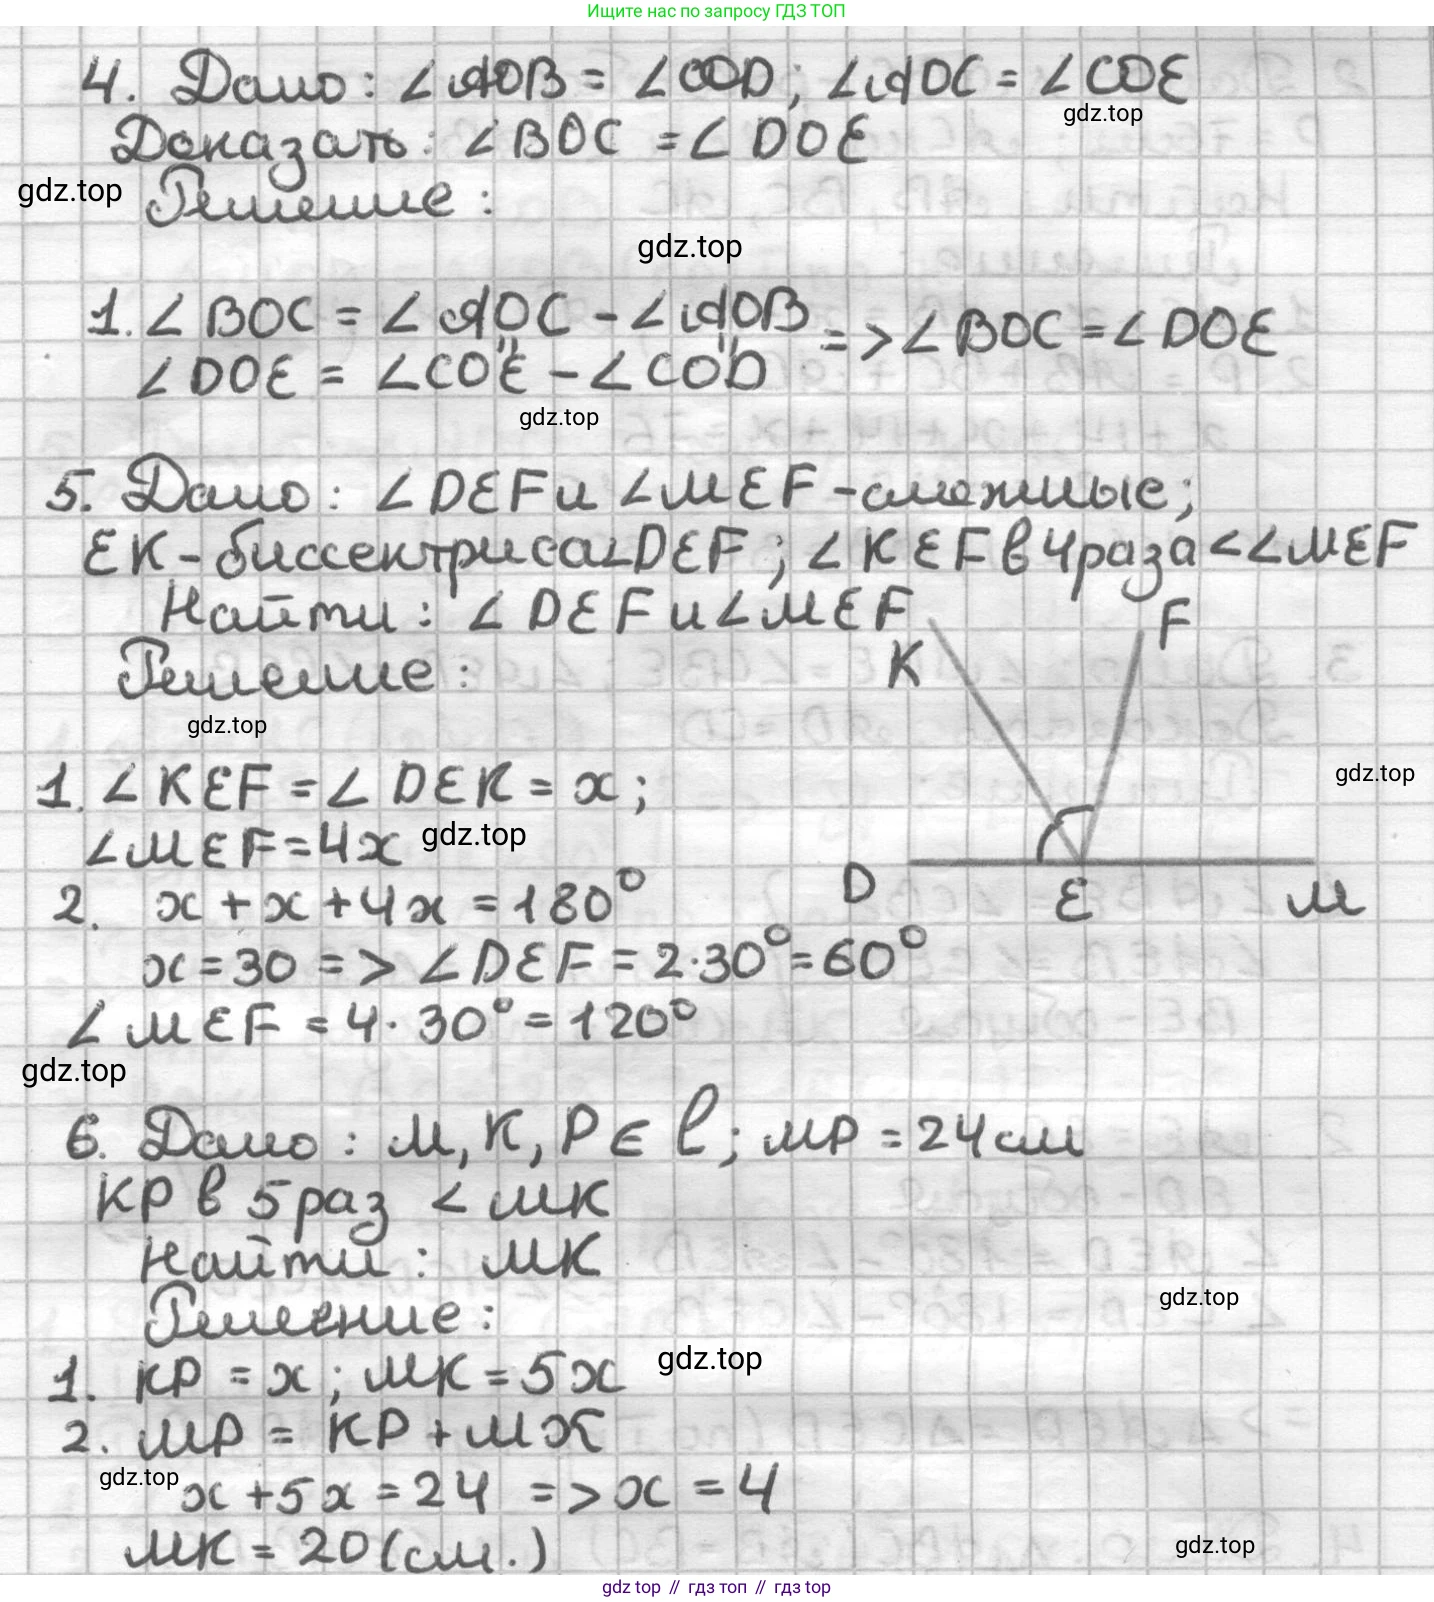 Ищите нас по запросу ГДЗ ТОП
4. Дано: ∠AOB = ∠COD; ∠AOC = ∠COE
gdz.top
Доказать: ∠BOC = ∠DOE
gdz.top
Решение:
gdz.top
1. ∠BOC = ∠AOC - ∠AOB => ∠BOC = ∠DOE
" "
∠DOE = ∠COE - ∠COD
gdz.top
5. Дано: ∠DEF и ∠MEF - смежные;
EK - биссектриса ∠DEF; ∠KEF в 4 раза < ∠MEF
Найти: ∠DEF и ∠MEF
K F
Решение:
gdz.top
gdz.top
1. ∠KEF = ∠DEK = x;
∠MEF = 4x
gdz.top
D E M
2. x + x + 4x = 180°
x = 30 => ∠DEF = 2·30° = 60°
∠MEF = 4· 30° = 120°
gdz.top
6. Дано: M, K, P ∈ l; MP = 24 см
KP в 5 раз < MK
Найти: MK
gdz.top
Решение:
gdz.top
1. KP = x; MK = 5x
2. MP = KP + MK
gdz.top
x + 5x = 24 => x = 4
MK = 20 (см.)
gdz.top
gdz top // гдз топ // gdz top